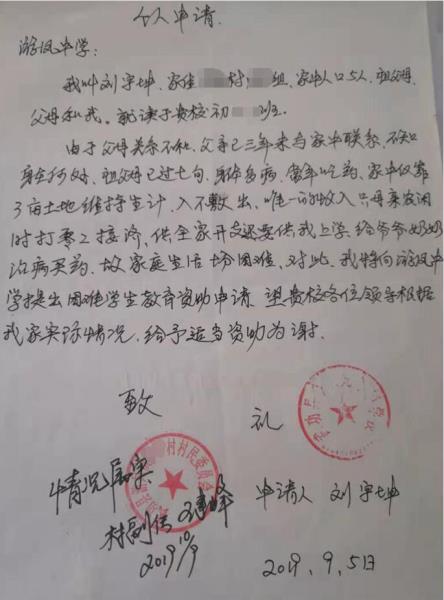 个人申请
游凤中学：
我叫刘宇坤，家住 村 组，家中人口5人，祖父母，
父母和我。就读于贵校初 班。
由于父母关系不和，父亲已三年未与家中联系，不知
身在何处，祖父母已过七旬，身体多病，常年吃药，家中仅靠
3亩土地维持生计，入不敷出，唯一的收入只母亲农闲
时打零工接济，供全家开支还要供我上学，给爷爷奶奶
治病买药，故家庭生活十分困难，对此，我特向游凤中
学提出困难学生教育资助申请，望贵校各位领导根据
我家实际情况，给予适当资助为谢。
致 礼
村村民委员会
情况属实
村副
2019 10/9
申请人 刘宇坤
2019.9.5日